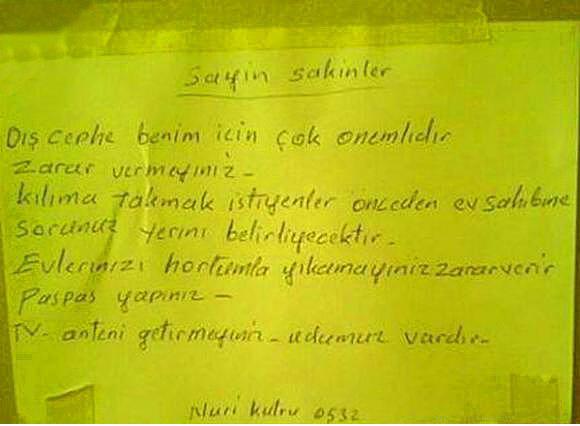 Sayin sakinler
Dış cephe benim için çok önemlidir
Zarar vermeyiniz -
Kılıma takmak istiyenler önceden ev sahibine
Sorunuz yerini belirliyecektir.
Evlerinizi hortumla yıkamayınız zarar verir
Paspas yapınız -
TV- anteni getirmeyiniz - udumuz vardır -
Nuri 0532